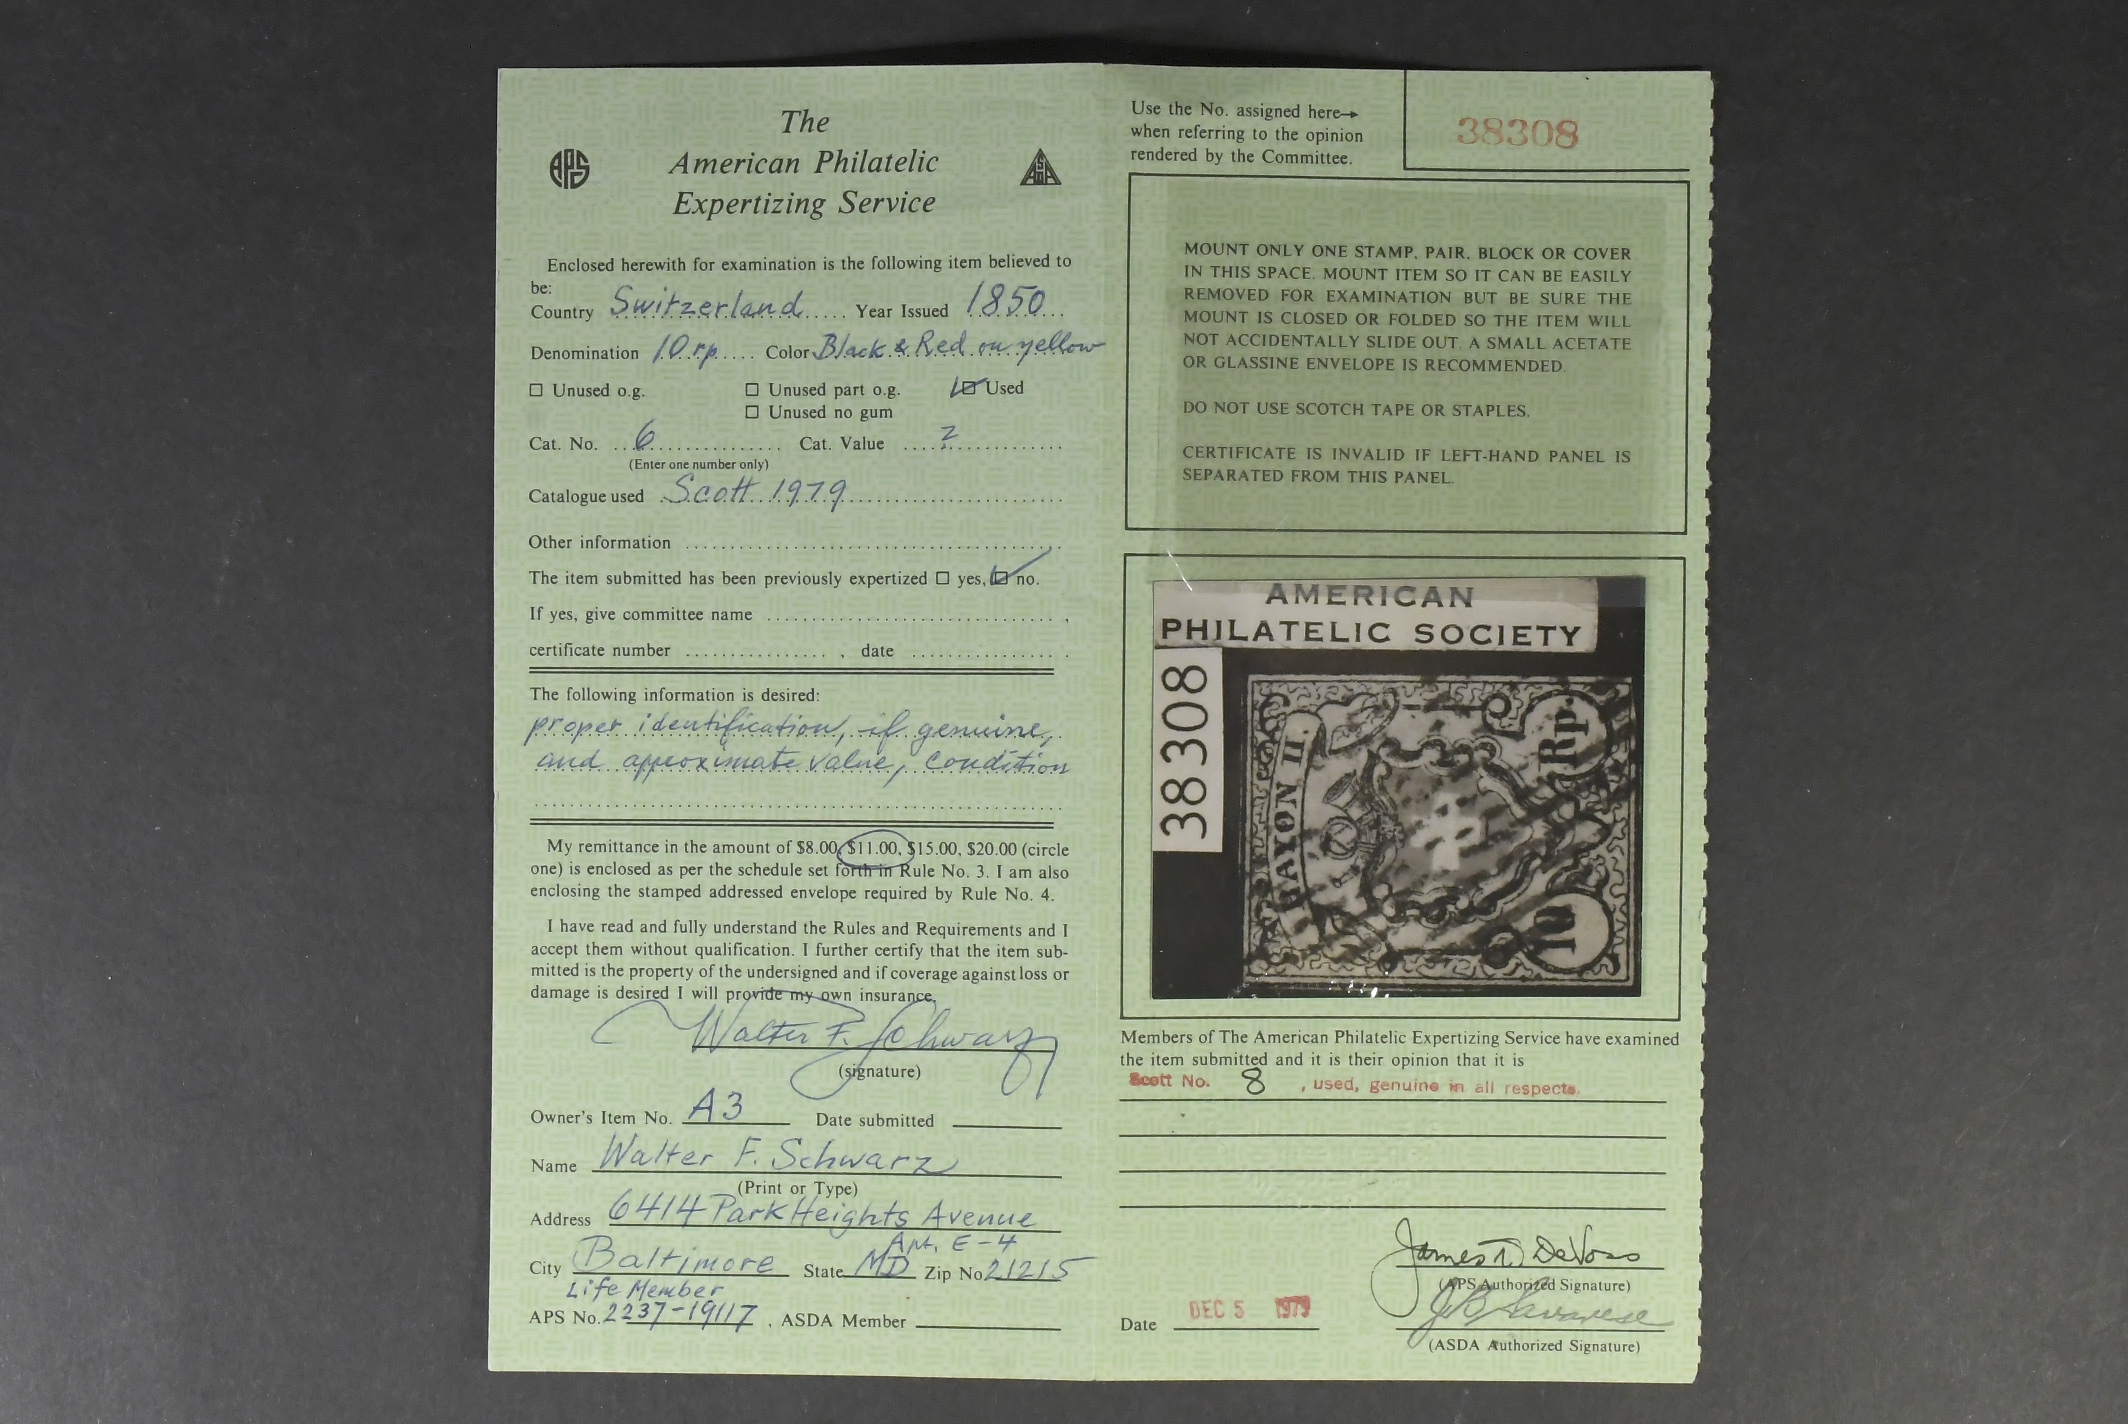 The
American Philatelic
Expertizing Service
APS
ASDA
Enclosed herewith for examination is the following item believed to
be:
Country Switzerland Year Issued 1850
Denomination 10 rp Color Black & Red on yellow
Unused o.g. Unused part o.g. Used
Unused no gum
Cat. No. 6 Cat. Value ?
(Enter one number only)
Catalogue used Scott 1979
Other information
The item submitted has been previously expertized yes, no.
If yes, give committee name ,
certificate number , date .
The following information is desired:
proper identification, if genuine,
and approximate value, condition
My remittance in the amount of $8.00, $11.00, $15.00, $20.00 (circle
one) is enclosed as per the schedule set forth in Rule No. 3. I am also
enclosing the stamped addressed envelope required by Rule No. 4.
I have read and fully understand the Rules and Requirements and I
accept them without qualification. I further certify that the item sub-
mitted is the property of the undersigned and if coverage against loss or
damage is desired I will provide my own insurance.
Walter F. Schwarz
(signature)
Owner's Item No. A3 Date submitted
Name Walter F. Schwarz
(Print or Type)
Address 6414 Park Heights Avenue
Apt. E-4
City Baltimore State MD Zip No 21215
Life Member
APS No. 2237-19117 , ASDA Member
Use the No. assigned here→
when referring to the opinion
rendered by the Committee.
38308
MOUNT ONLY ONE STAMP, PAIR, BLOCK OR COVER
IN THIS SPACE. MOUNT ITEM SO IT CAN BE EASILY
REMOVED FOR EXAMINATION BUT BE SURE THE
MOUNT IS CLOSED OR FOLDED SO THE ITEM WILL
NOT ACCIDENTALLY SLIDE OUT. A SMALL ACETATE
OR GLASSINE ENVELOPE IS RECOMMENDED.
DO NOT USE SCOTCH TAPE OR STAPLES.
CERTIFICATE IS INVALID IF LEFT-HAND PANEL IS
SEPARATED FROM THIS PANEL.
AMERICAN
PHILATELIC SOCIETY
38308
RAYON II.
10 Rp
Members of The American Philatelic Expertizing Service have examined
the item submitted and it is their opinion that it is
Scott No. 8 , used, genuine in all respects.
James T. DeVoss
(APS Authorized Signature)
Date DEC 5 1979
(ASDA Authorized Signature)